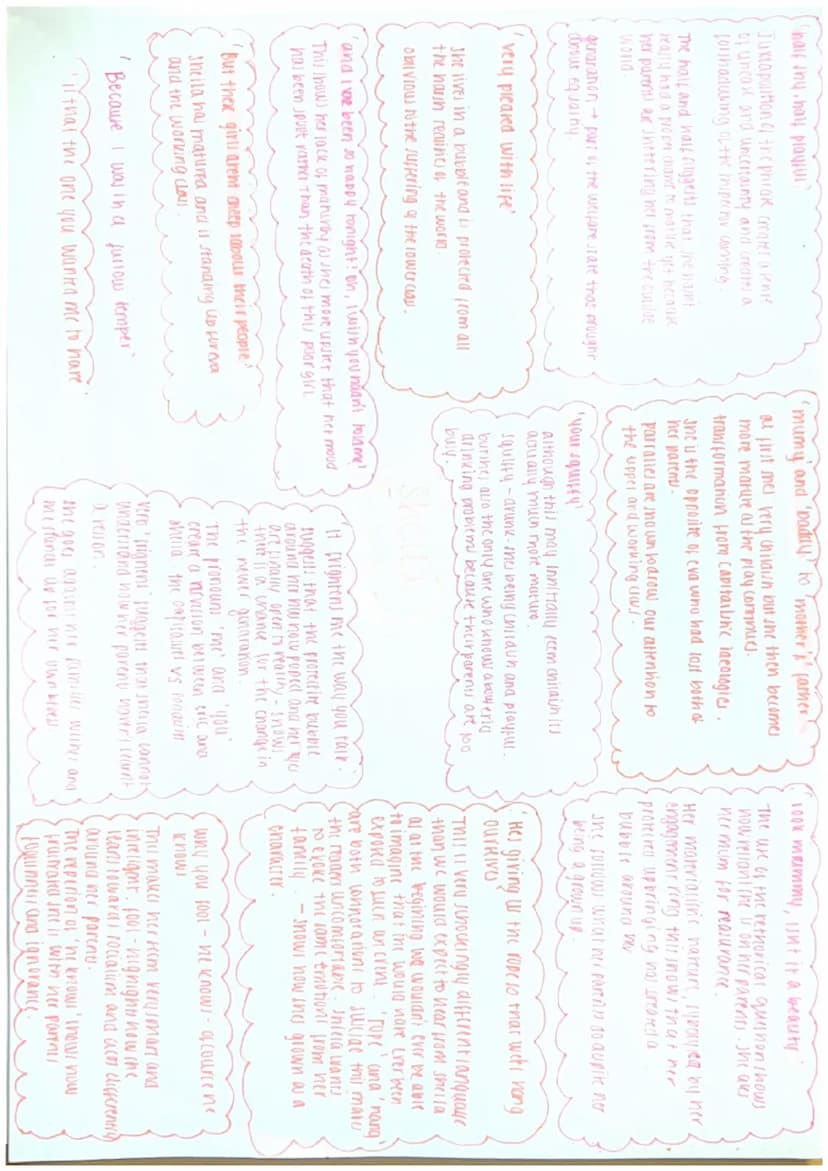 'half my half playful'
Juxtaposition of the phrase creates a sense
of unrest and uncertainty and creates a
foreshadowing of the inspector coming.
The half and half suggests that she hasn't
really had a
her parents are sheltering her from the outside
world
generation → part of the welfare state that brought
about equality
'very pleased with life'
She lives in a bubble and is protected from all
the harsh realities of the world.
oblivious to the suffering of the lower class.
'and i've been so happy tonight. oh, I wish you hadn't told me'
This shows her lack of maturity as she's more upset that her mood
has been spoilt rather than the death of this poor girl.
'But these girls arent cheap labour their people'
sheila has matured and is standing up for eva
and the working class.
'Because I was in a furious temper'
'is that the one you wanted me to have'
'mumy' and 'daddy' to 'mother' & 'father'
at first shes very childish but she then becomes
more mature as the play continues.
transformation from capitalistic ideologies.
she is the opposite of eva who had lost both of
her parents.
parralles are shown to draw our attention to
the upper and working class.
'your squiffy'
although this may innitially seem childish its
actually much more mature.
squiffy - drunk. shes being childish and playful
but shes also the only one who knows about eric
drinking problems because their parents are too
busy.
Sheila
'it frightens me the way you talk'
suggests that the protective bubble
around her has now popped and her eyes
are finally open to reality - shows
there is a change for the change in
the newer generation.
The pronouns 'me' and 'you'
create a division between eric and
sheila the capitalists vs
verb 'frightens' suggests that sheila cannot
understand how her parents havent learnt
a lesson.
she goes against her families wishes and
she stands up for her own beliefs
'look mummy, isnt it a beauty'
The use of the rhetorical question shows
how reliant she is on her parents. she asks
her mum for reasurance.
Her materialistic nature,
engagement ring this shows that her
protected upbringing has created a
bubble around her
she follows what her parents do despite her
being a grown up.
'Hes giving us the rope so that we'll hang
ourselves'
This is very suprisingly different language
than we would expect to hear from sheila
as at the begining we wouldnt ever be able
to imagine that she would have ever been
exposed to such violent. 'rope' and 'hang'
are both connotations to suicide this makes
the readers uncomfortable. sheila wants
to evoke the same emotions from her
family. - shows how shes grown as a
character.
'why you fool - he knows. of course he
knows'
This makes her seem very smart and
intelligent. fool - highlights how she
leans towards socialism and acts differently
around her parents.
The repetition of 'he knows' shows how
frustrated she is with her parents
foolishness and ignorance.